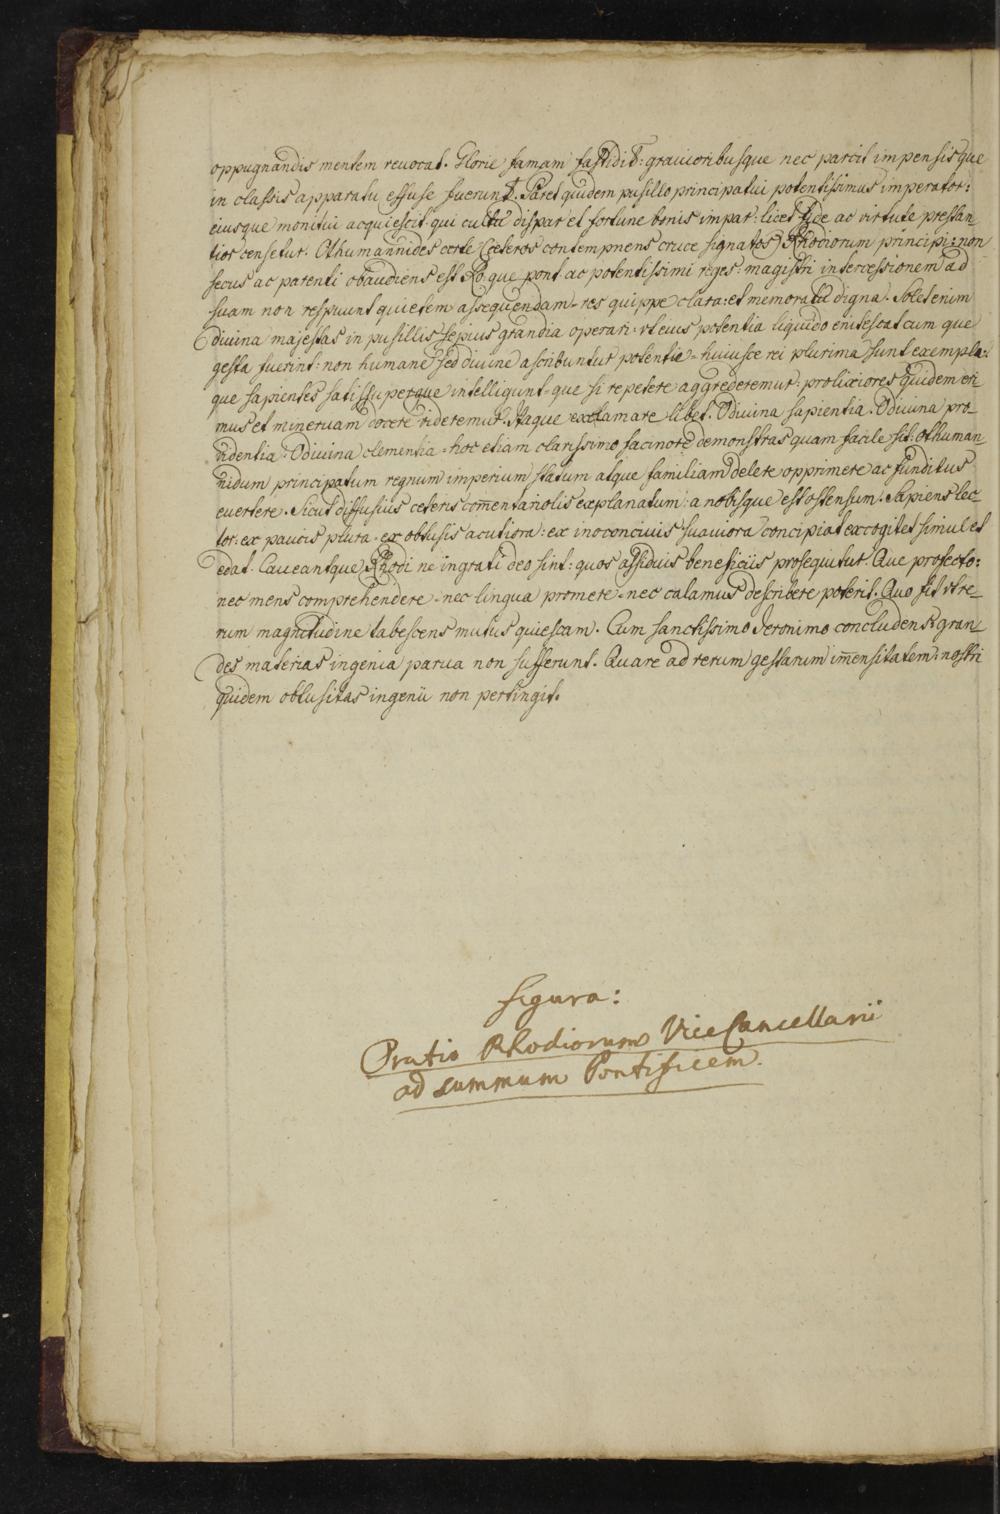 oppugnandis mentem reuocat. Glorie famam fastidit: grauioribusque nec parcit impensis que
in classis apparatu effuse fuerunt. Paret quidem pusillo principatui potentissimus imperator:
eiusque monitui acquiescit qui cultu dispar et fortune bonis impar: licet fide ac virtute prestan_
tior censetur. Othumannides certe (Ceteros contempnens cruce signatos) Rhodiorum principi: non
secus ac parenti obaudiens est Ro. que pont. ac potentissimi reges: magistri intercessionem ad
suam non respuunt quietem assequendam. res quippe clara: et memoratu digna. Solet enim
diuina majestas in pusillis sepius grandia operari: vt eius potentia liquido enitescat cum que
gesta fuerint: non humane sed diuine ascribuntur potentie. huiusce rei plurima sunt exempla:
que sapientes satis superque intelligunt. que si repetere aggrederemur: prolixiores quidem eri
mus et mineruam docere videremur. Itaque exclamare libet. O diuina sapientia. O diuina pro_
uidentia. O diuina clementia. hoc etiam clarissimo facinore demonstras quam facile sit: othuman_
nidum principatum regnum imperium statum atque familiam delere opprimere ac funditus
euertere. Sicut diffusius ceteris com̄entariolis explanatum: a nobisque est ostensum. Sapiens lec_
tor: ex paucis plura. ex obtusis acutiora: ex inconcinnis suauiora concipiat excogitet simul et
edat. Caueantque Rhodi ne ingrati deo sint: quos assiduis beneficiis prosequitur. Que profecto:
nec mens comprehendere. nec lingua promere. nec calamus describere poterit. Quo fit vt re_
rum magnitudine tabescens mutus quiescam. Cum sanctissimo Jeronimo concludens: gran_
des materias ingenia parua non sufferunt. Quare ad rerum gestarum im̄ensitatem: nostri
quidem obtusitas ingenii non pertingit.
figura:
Oratio Rhodiorum ViceCancellarii
ad summum Pontificem.